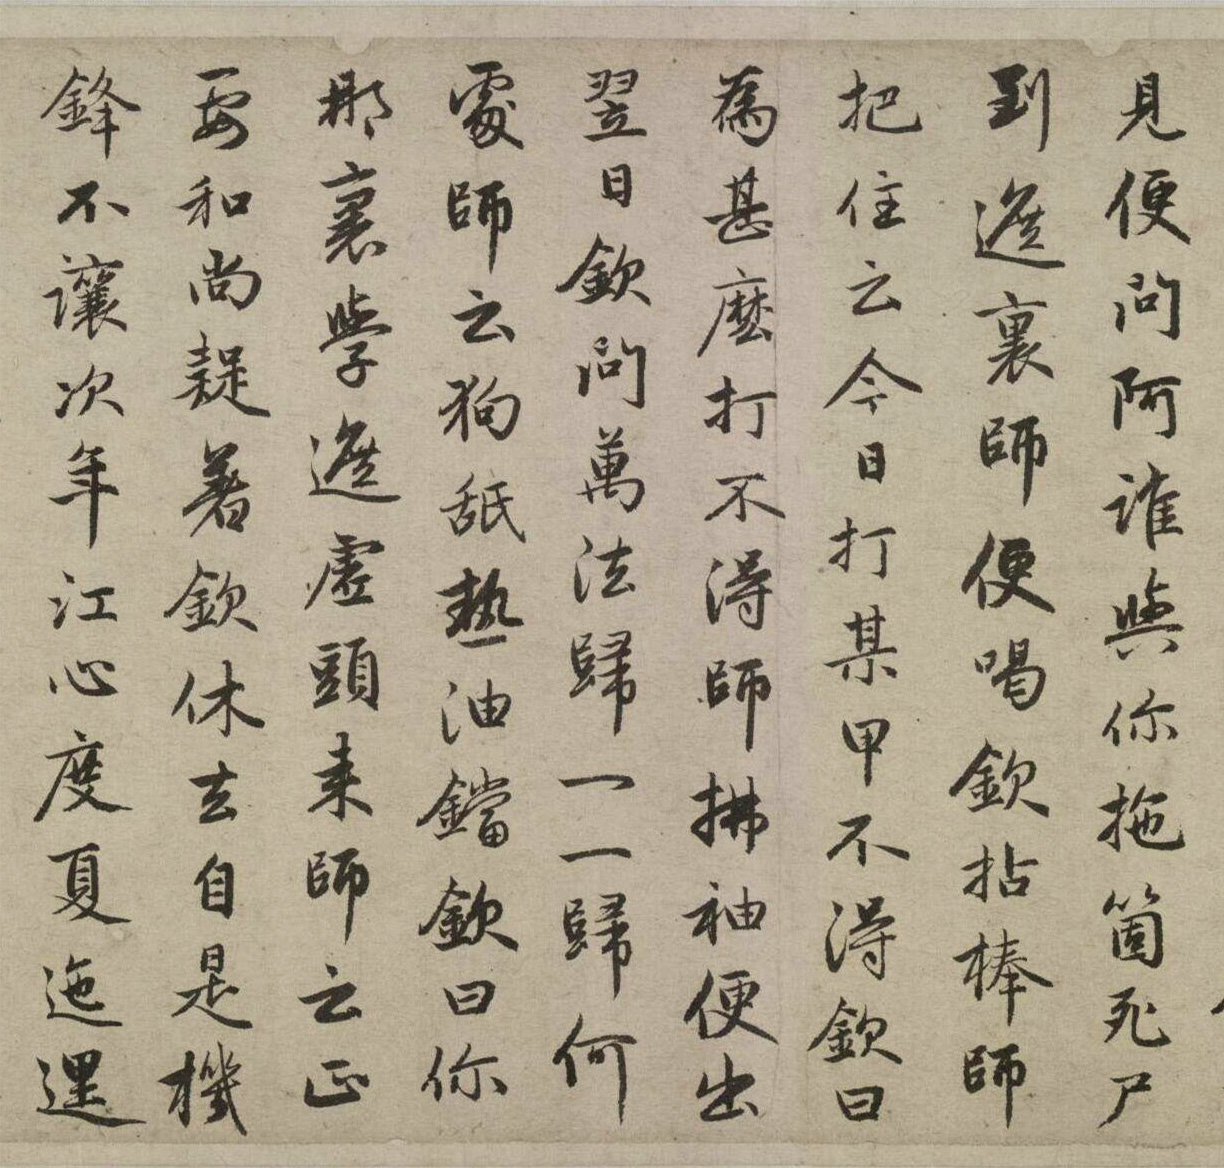 見便問阿誰與你拖箇死尸
到遮裏師便喝欽拈棒師
把住云今日打某甲不得欽曰
為甚麼打不得師拂袖便出
翌日欽問萬法歸一一歸何
處師云狗舐熱油鐺欽曰你
那裏學遮虛頭来師云正
要和尚疑著欽休去自是機
鋒不讓次年江心度夏迤邐